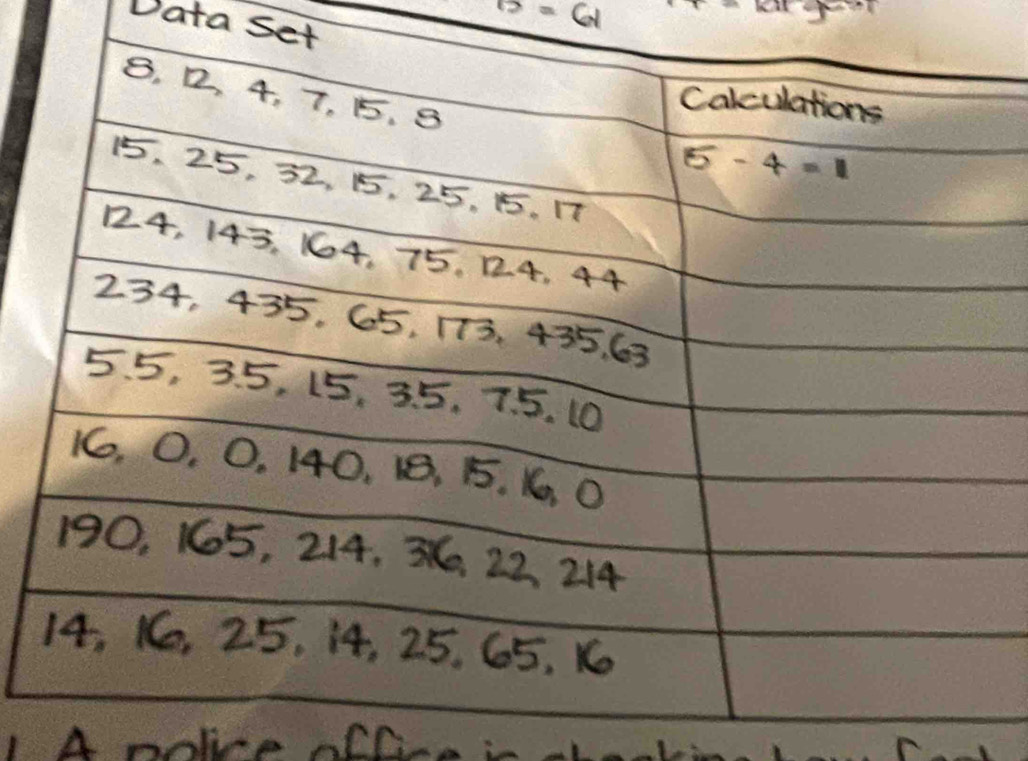 = 61
Data Set
Calculations
8, 12, 4, 7, 15, 8
15 - 4 = 11
15, 25, 32, 15, 25, 15, 17
124, 143, 164, 75, 124, 44
234, 435, 65, 173, 435, 63
5.5, 3.5, 1.5, 3.5, 7.5, 10
16, 0, 0, 140, 18, 15, 16, 0
190, 165, 214, 316, 22, 214
14, 16, 25, 14, 25, 65, 16
A police office